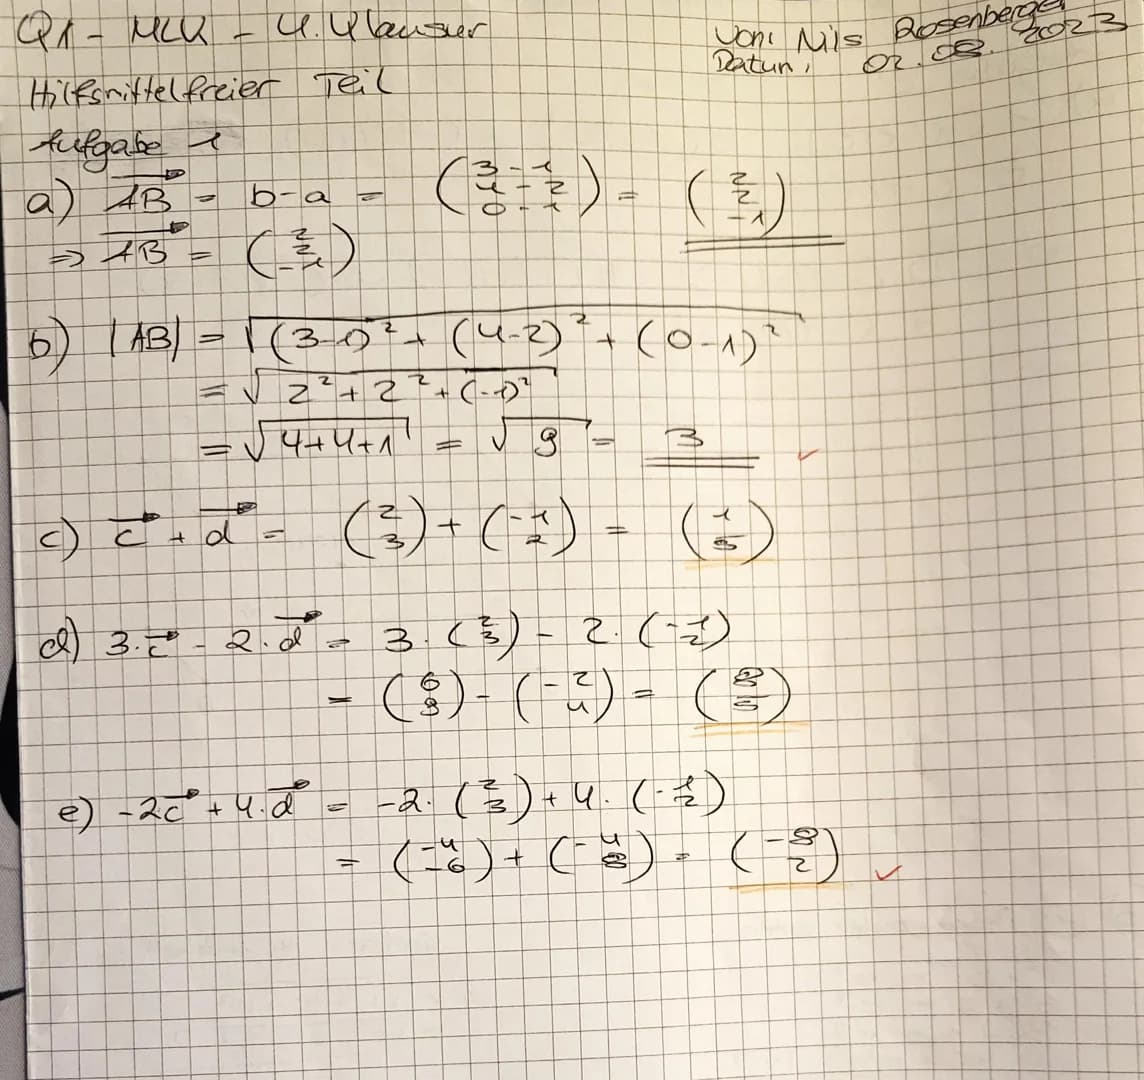 Q1 - MLK - 4. Klausur
Von: Nils Rosenberger
Datum: 02.08.2023
Hilfsmittelfreier Teil
Aufgabe 1
a) AB = b-a = (3-1 4-2 0-1) = (2 2 -1)
⇒ AB = (2 2 -1)
b) |AB| = √(3-1)² + (4-2)² + (0-1)²
= √2² + 2² + (-1)²
= √4+4+1 = √9 = 3 ✓
c) c + d = (2 3) + (-1 2) = (1 5)
d) 3·c - 2·d = 3·(2 3) - 2·(-1 2)
= (6 9) - (-2 4) = (8 5)
e) -2c + 4·d = -2·(2 3) + 4·(-1 2)
= (-4 -6) + (-4 8) = (-8 2) ✓